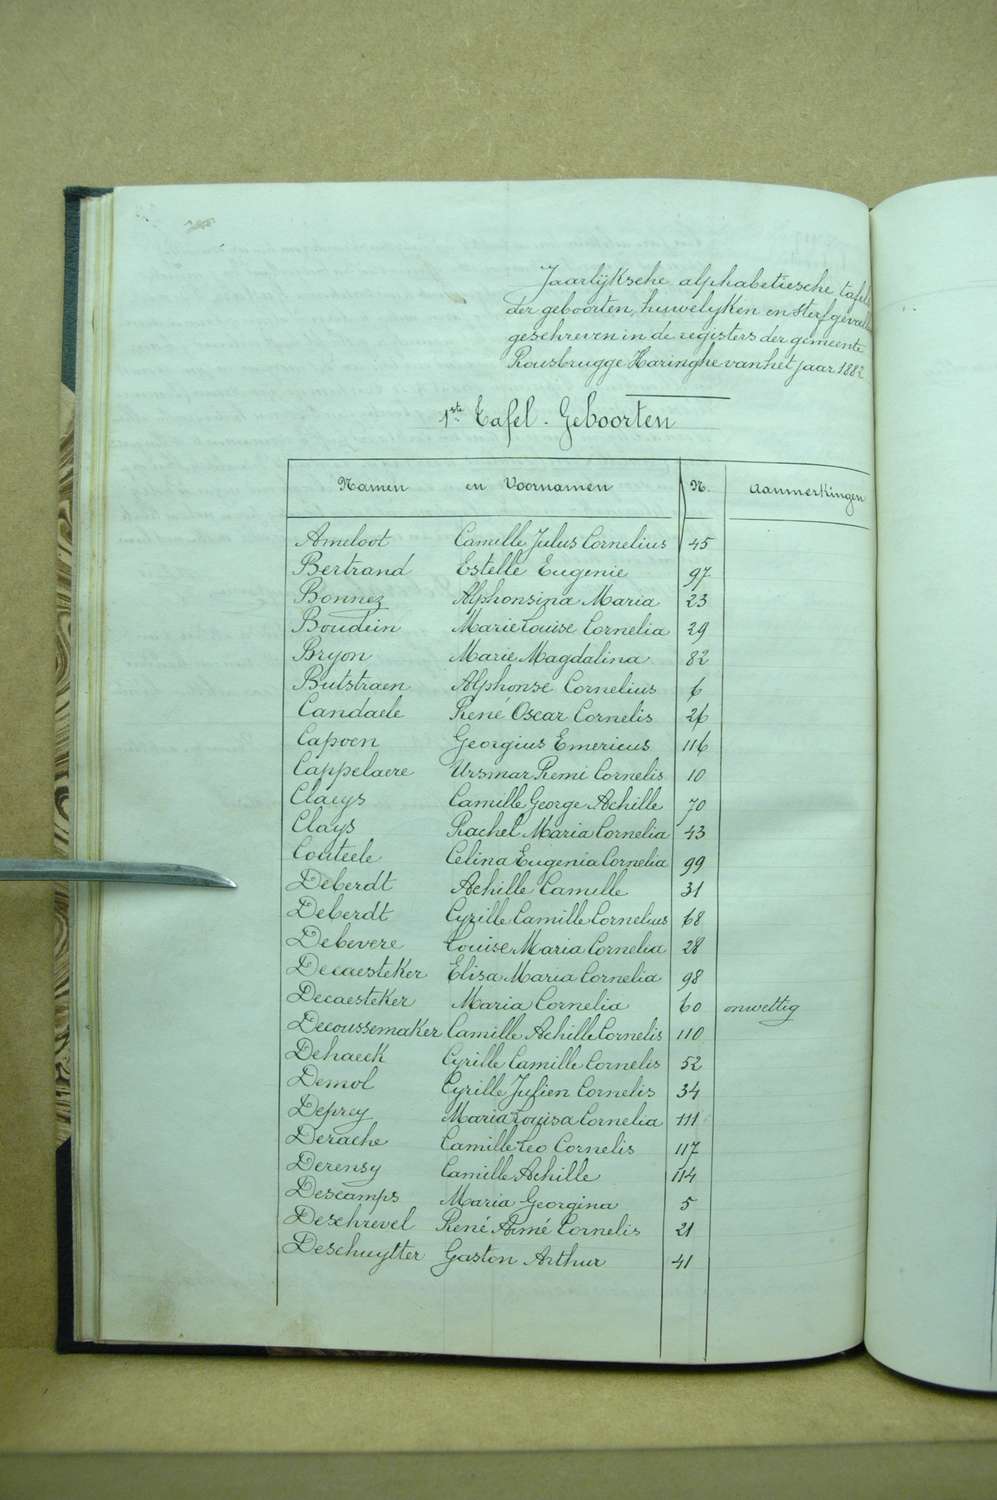 Jaarlijksche alphabetiesche tafels
der geboorten, huwelyken en sterfgevallen
geschreven in de registers der gemeente
Rousbrugge Haringhe van het jaar 1882
1ste Tafel. Geboorten
Namen en Voornamen N. Aanmerkingen
Ameloot Camille Julus Cornelius 45
Bertrand Estelle Eugenie 97
Bonnez Alphonsina Maria 23
Boudein Marie Louise Cornelia 29
Bryon Marie Magdalina 82
Butstraen Alphonse Cornelius 6
Candaele René Oscar Cornelis 26
Capoen Georgius Emericus 116
Cappelaere Ursmar Remi Cornelis 10
Claeys Camille George Achille 70
Clays Rachel Maria Cornelia 43
Couteele Celina Eugenia Cornelia 99
Deberdt Achille Camille 31
Deberdt Cyrille Camille Cornelius 68
Debevere Louise Maria Cornelia 28
Decaesteker Elisa Maria Cornelia 98
Decaesteker Maria Cornelia 60 onwettig
Decoussemaker Camille Achille Cornelis 110
Dehaeck Cyrille Camille Cornelis 52
Demol Cyrille Julien Cornelis 34
Deprey Maria Louisa Cornelia 111
Derache Camille Leo Cornelis 117
Derensy Camille Achille 114
Descamps Maria Georgina 5
Deschrevel René Aimé Cornelis 21
Deschuytter Gaston Arthur 41